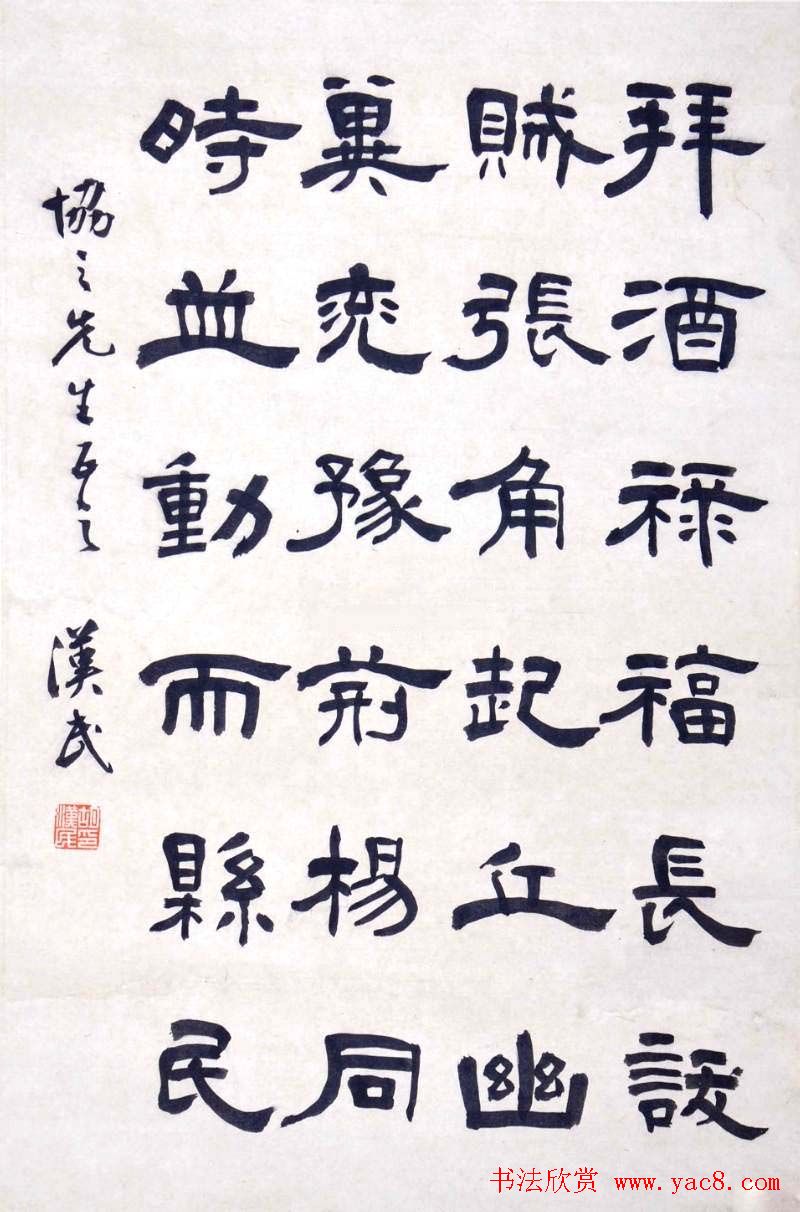 拜酒祿福長訞
賊張角起丘幽
冀兖豫荊楊同
時並動而縣民
協之先生正之
漢民
胡漢民印
书法欣赏 www.yac8.com